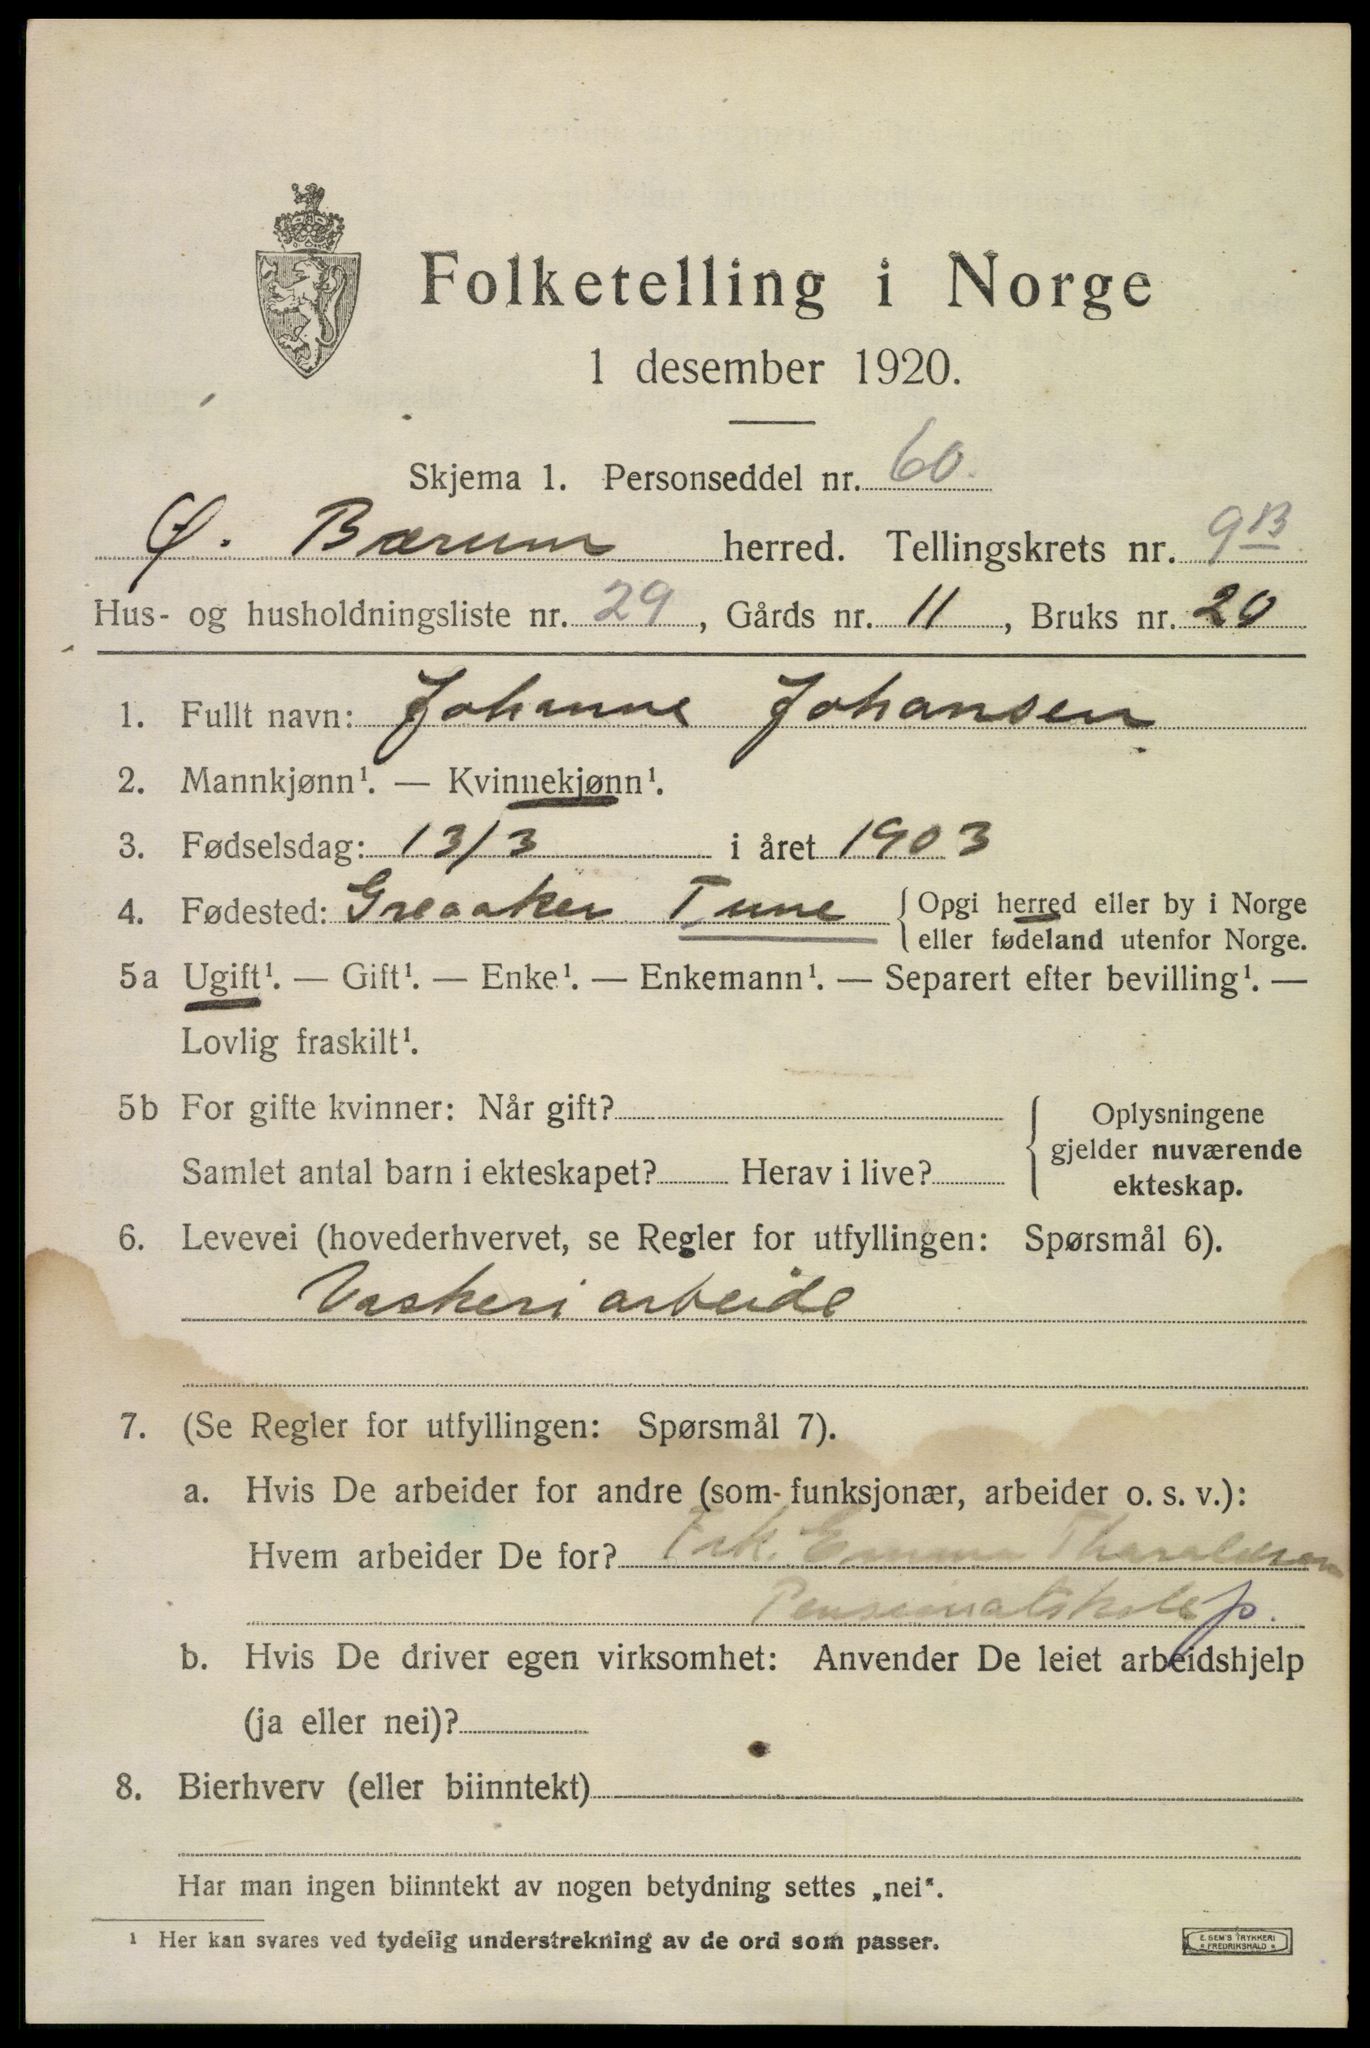 Folketelling i Norge
1 desember 1920.
Skjema 1. Personseddel nr. 60.
Ø. Bærum herred. Tellingskrets nr. 9B
Hus- og husholdningsliste nr. 29, Gårds nr. 11, Bruks nr. 20
1. Fullt navn: Johanne Johansen
2. Mannkjønn¹. — Kvinnekjønn¹.
3. Fødselsdag: 13/3 i året 1903
4. Fødested: Greaaker Tune { Opgi herred eller by i Norge
eller fødeland utenfor Norge.
5a Ugift¹. — Gift¹. — Enke¹. — Enkemann¹. — Separert efter bevilling¹. —
Lovlig fraskilt¹.
5b For gifte kvinner: Når gift?
Samlet antal barn i ekteskapet? Herav i live?
Oplysningene
gjelder nuværende
ekteskap.
6. Levevei (hovederhvervet, se Regler for utfyllingen: Spørsmål 6).
Vaskeri arbeide
7. (Se Regler for utfyllingen: Spørsmål 7).
a. Hvis De arbeider for andre (som funksjonær, arbeider o. s. v.):
Hvem arbeider De for? Frk. Emma Tharaldsen
Pensionatskole p.
b. Hvis De driver egen virksomhet: Anvender De leiet arbeidshjelp
(ja eller nei)?
8. Bierhverv (eller biinntekt)
Har man ingen biinntekt av nogen betydning settes „nei“.
¹ Her kan svares ved tydelig understrekning av de ord som passer.
E. SEM'S TRYKKERI
* FREDRIKSHALD *